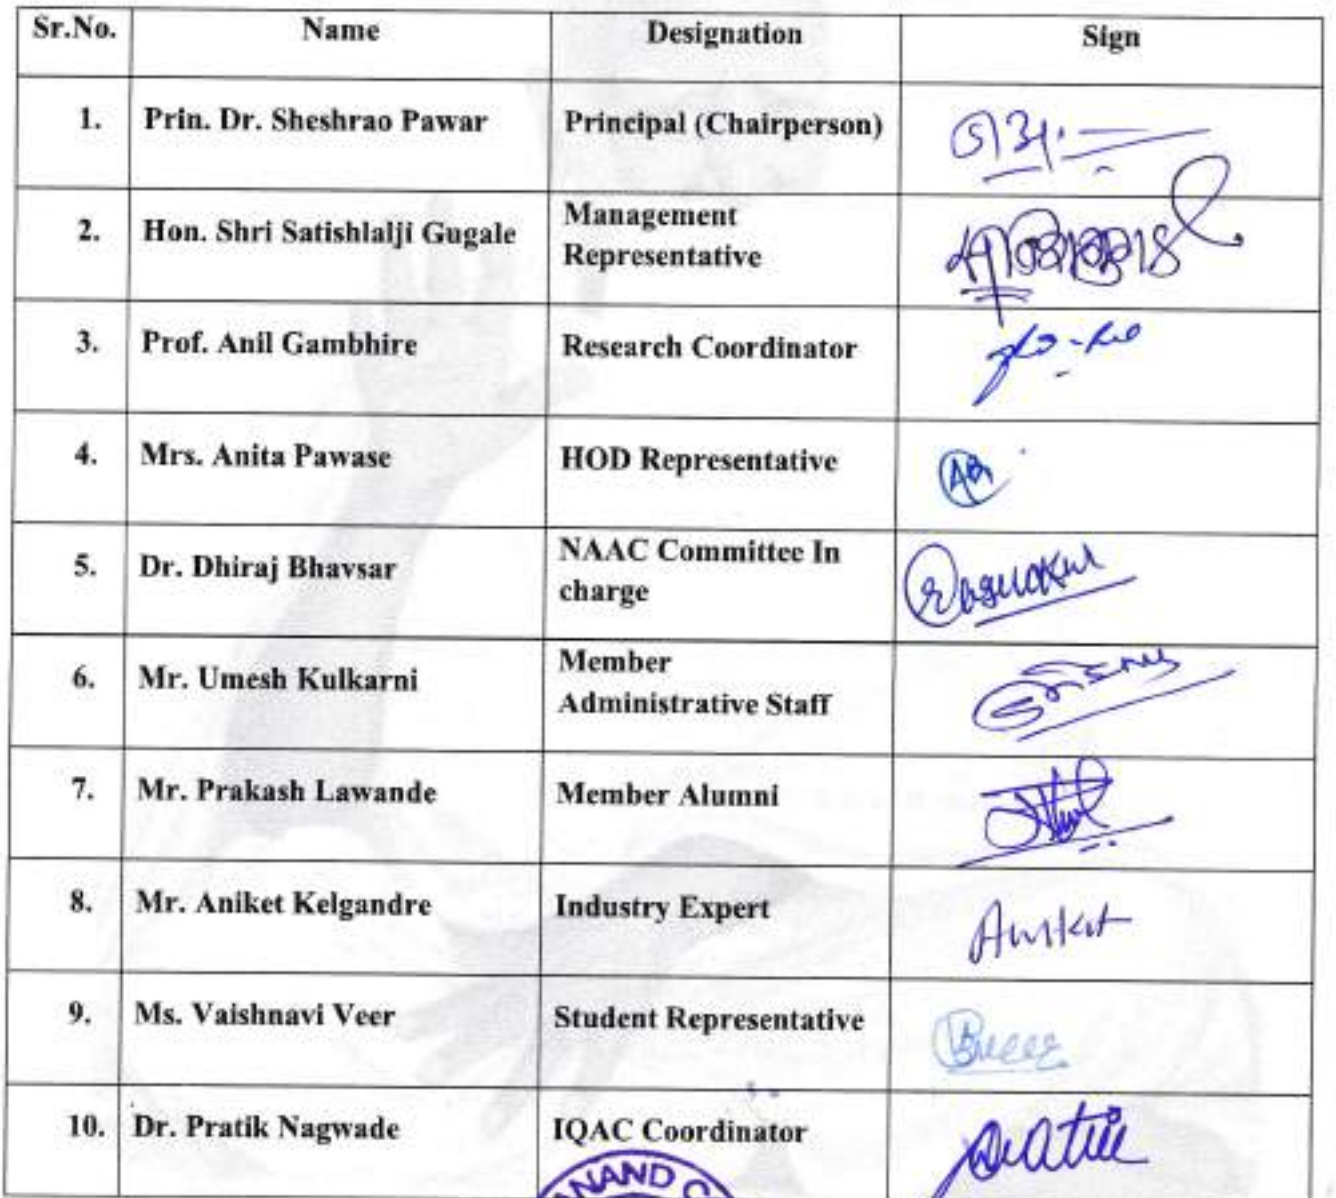 Sr.No. Name Designation Sign
1. Prin. Dr. Sheshrao Pawar Principal (Chairperson)
2. Hon. Shri Satishlalji Gugale Management
Representative
3. Prof. Anil Gambhire Research Coordinator
4. Mrs. Anita Pawase HOD Representative
5. Dr. Dhiraj Bhavsar NAAC Committee In
charge
6. Mr. Umesh Kulkarni Member
Administrative Staff
7. Mr. Prakash Lawande Member Alumni
8. Mr. Aniket Kelgandre Industry Expert Aniket
9. Ms. Vaishnavi Veer Student Representative
10. Dr. Pratik Nagwade IQAC Coordinator
ANAND C